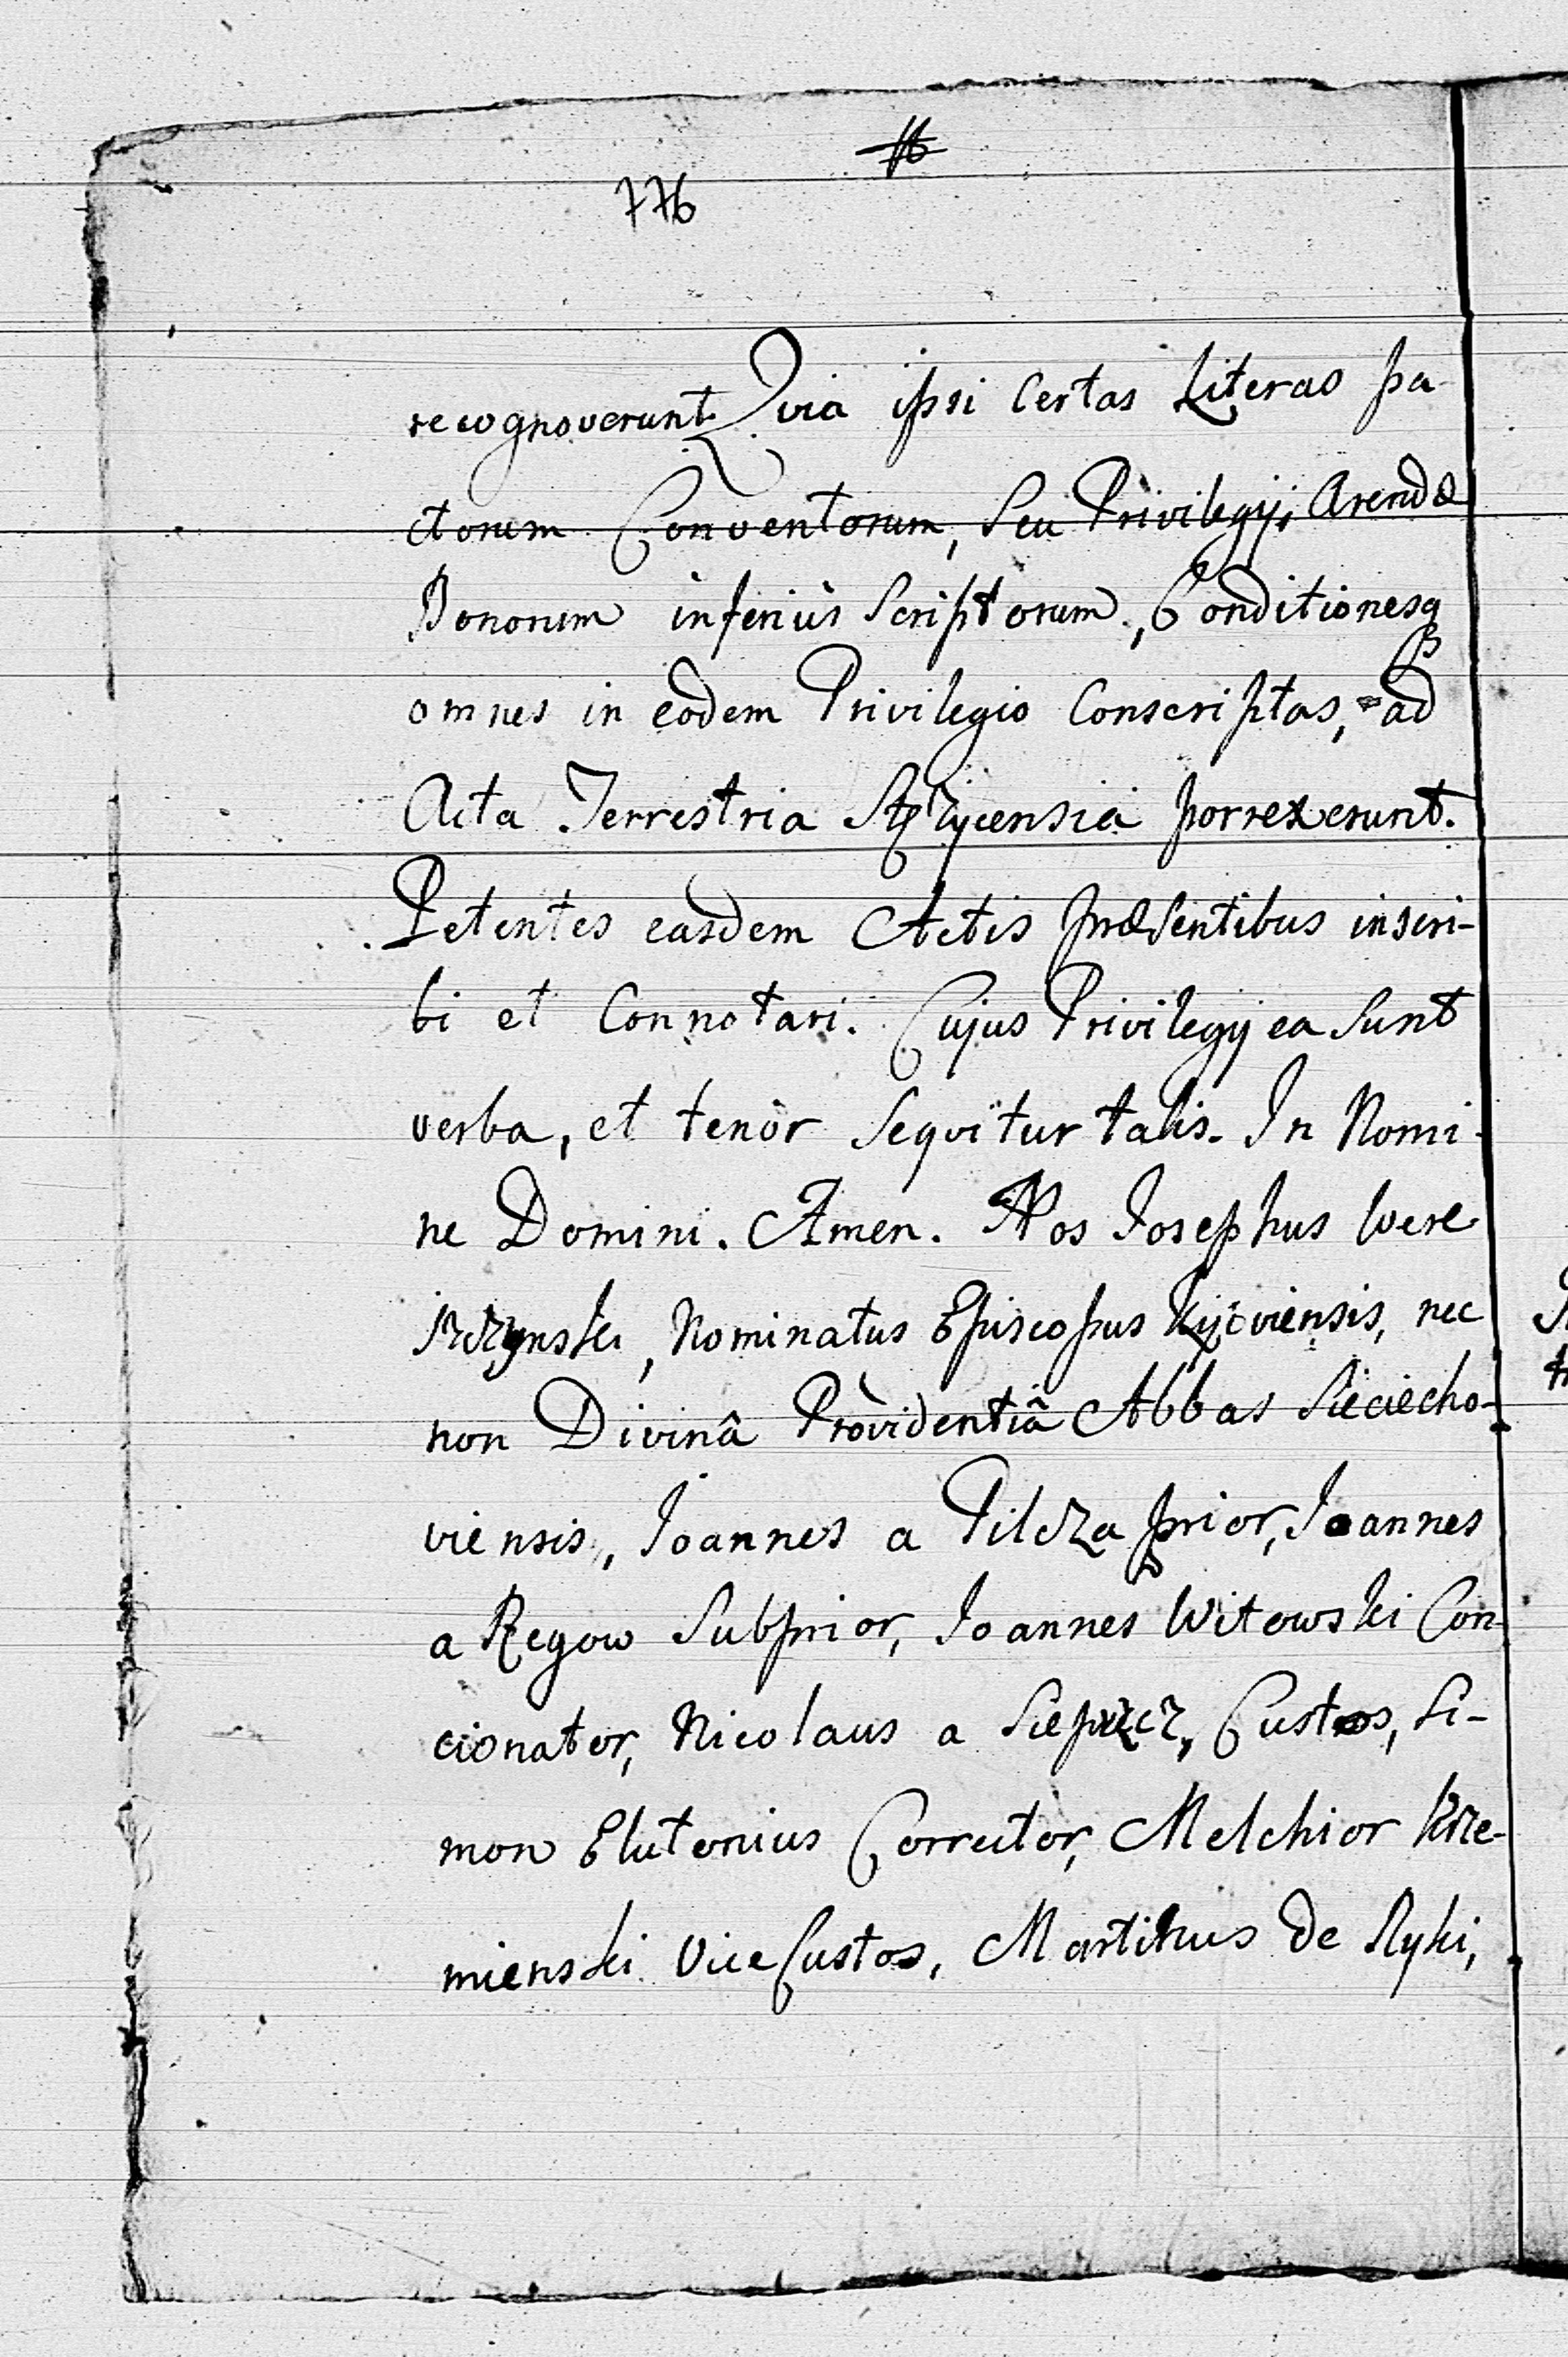 776
recognoverunt. Qvia ipsi Certas Literas pa-
ctorum Conventorum, Seu Privilegij, Arendæ
Bonorum inferiùs Scriptorum, Conditionesq
omnes in eodem Privilegio Conscriptas, ad
Acta Terrestria Stężycensia porrexerunt.
Petentes easdem Actis præsentibus inscri-
bi et Connotari. Cujus Privilegij ea Sunt
verba, et tenòr Seqvitur talis. In Nomi-
ne Domini. Amen. Nos Josephus Were
szczynski, Nominatus Episcopus Kijoviensis, nec
non Divinâ Providentiâ Abbas Sieciecho-
viensis, Joannes a Pilcza prior, Joannes
a Regow Subprior, Joannes Witowski Con-
cionator, Nicolaus a Custos, Si-
mon Eluterius Corrector, Melchior Krze-
mienski ViceCustos, Martinus de Ryki,